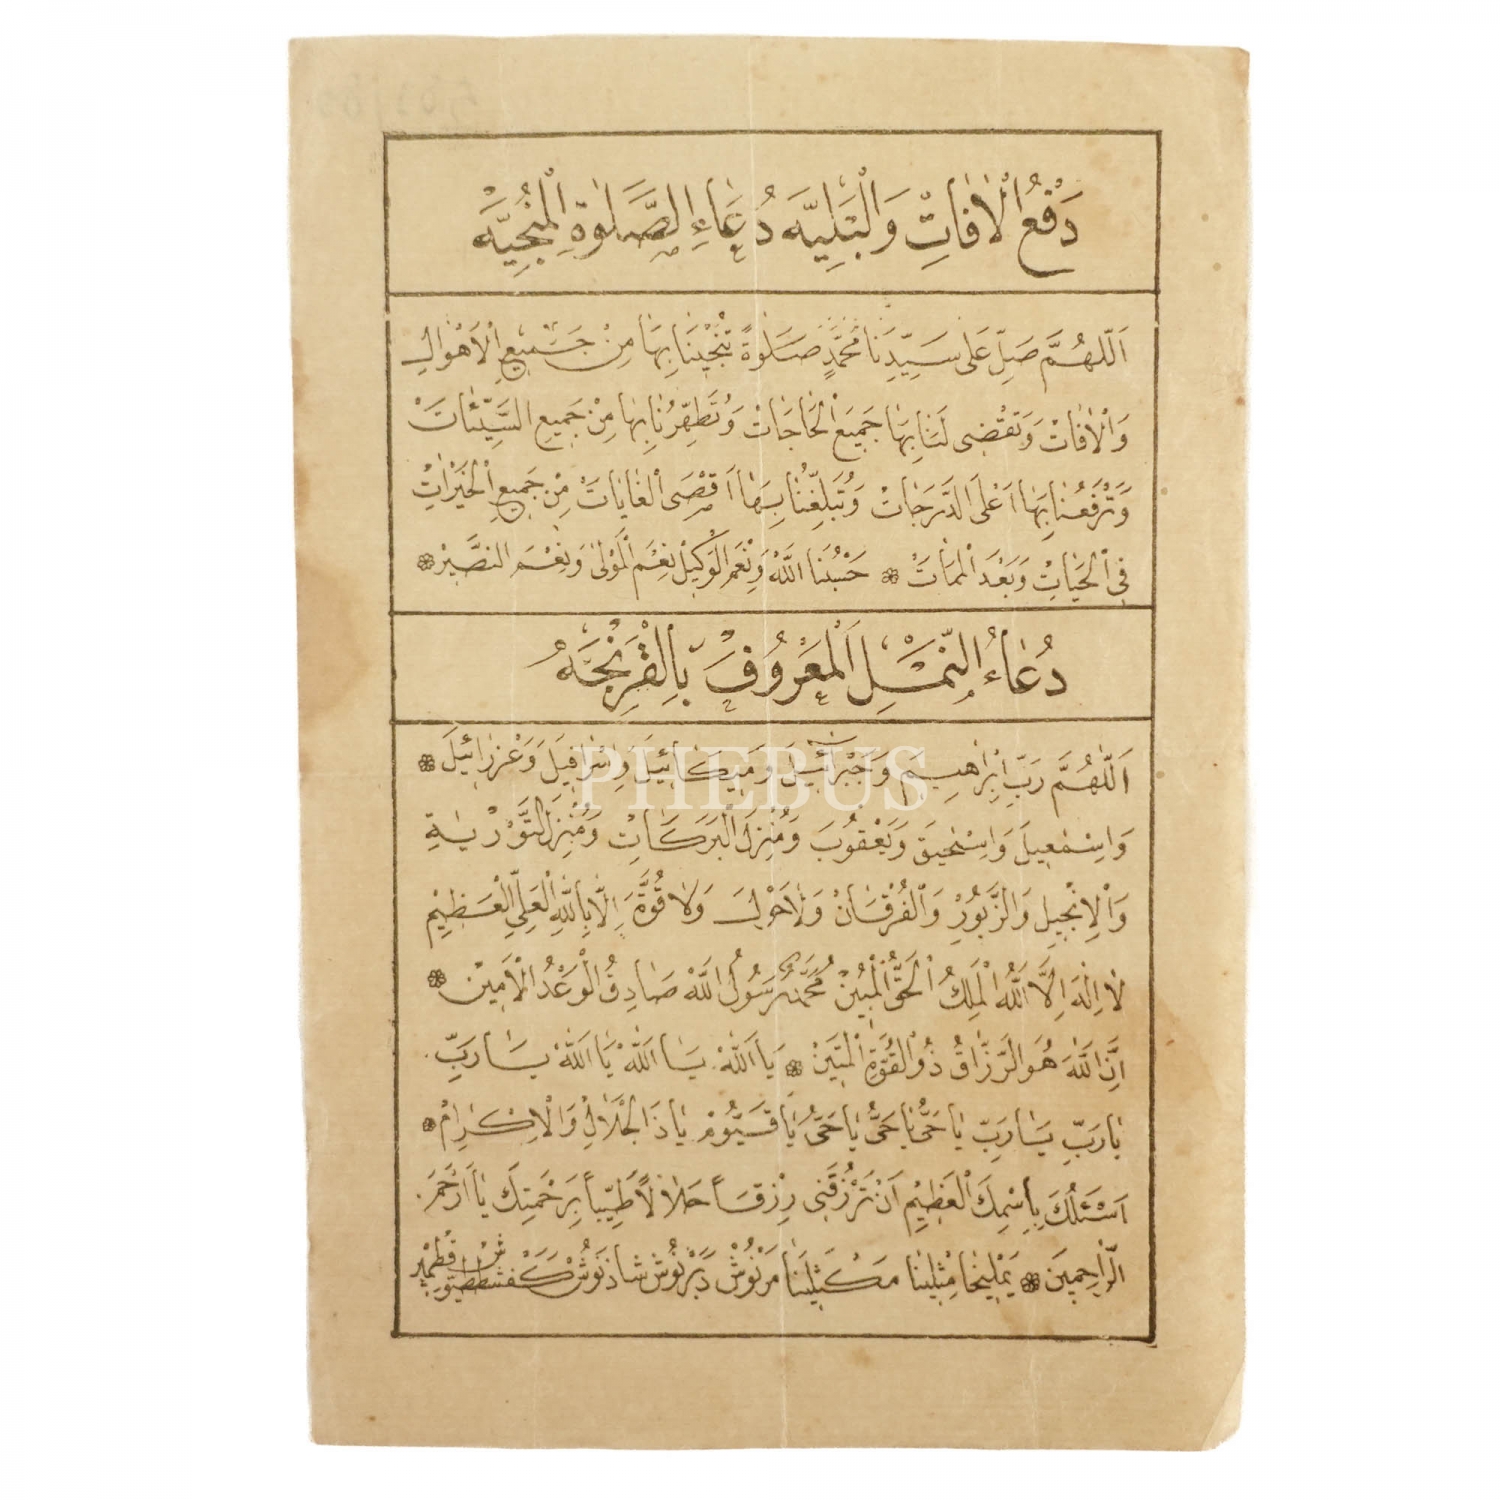 دَفْعُ الْاٰفَاتِ وَالْبَلِيَّه دُعَاءِ الصَّلٰوةِ الْمُنْجِيَّه
اَللّٰهُمَّ صَلِّ عَلٰى سَيِّدِنَا مُحَمَّدٍ صَلٰوةً تُنْجِيْنَا بِهَا مِنْ جَمِيعِ الْاَهْوَالِ
وَالْاٰفَاتْ وَتَقْضِى لَنَا بِهَا جَمِيَع الْحَاجَاتْ وَتُطَهِّرُنَا بِهَا مِنْ جَمِيعِ السَّيِّئَاتْ
وَتَرْفَعُنَا بِهَا اَعْلَى الدَّرَجَاتْ وَتُبَلِّغُنَا بِهَا اَقْصَى الْغَايَاتْ مِنْ جَمِيعِ الْخَيْرَاتْ
فِى الْحَيَاتِ وَبَعْدَ الْمَمَاتْ ❁ حَسْبُنَا اللّٰهُ وَنِعْمَ الْوَكِيلْ نِعْمَ الْمَوْلٰى وَنِعْمَ النَّصِيْر ❁
دُعَاءُ النَّمْلِ الْمَعْرُوفْ بِالْقَرِنْجَه
PHEBUS
اَللّٰهُمَّ رَبِّ اِبْرَاهِيمَ وَجَبْرَائِيلَ وَمِيكَائِيلَ وَاِسْرَافِيلَ وَعَزْرَائِيلَ ❁
وَاِسْمٰعِيلَ وَاِسْحٰيقَ وَيَعْقُوبَ وَمُنْزِلَ الْبَرَكَاتِ وَمُنْزِلَ التَّوْرٰيةِ
وَالْاِنْجِيلِ وَالزَّبُورِ وَالْفُرْقَانْ وَلَاحَوْلَ وَلَا قُوَّةَ اِلَّا بِاللّٰهِ الْعَلِىِّ الْعَظِيْمِ
لَا اِلٰهَ اِلَّا اللّٰهُ الْمَلِكُ الْحَقُّ الْمُبِيْنْ مُحَمَّدٌ رَسُولُ اللّٰهْ صَادِقُ الْوَعْدُ الْاَمِيْنْ ❁
اِنَّ اللّٰهَ هُوَ الرَّزَّاقُ ذُو الْقُوَّةِ الْمَتِيْنْ ❁ يَا اَللّٰهْ يَا اَللّٰهْ يَا اَللّٰهْ يَارَبِّ
يَارَبِّ يَارَبِّ يَاحَىُّ يَاحَىُّ يَاحَىُّ يَا قَيُّومْ يَاذَا الْجَلَالِ وَالْاِكْرَامْ ❁
اَسْئَلُكَ بِاِسْمِكَ الْعَظِيْمِ اَنْ تَرْزُقَنِى رِزْقًا حَلَالًا طَيِّبًا بِرَحْمَتِكَ يَا اَرْحَمَ
الرَّاحِمِينَ ❁ يَمْلِيخَا مِثْلِينَا مَكْثِلِينَا مَرْنُوشْ دَبَرْنُوشْ شَاذَنُوشْ كَفَشْطَطَيُوشْ قِطْمِيْر